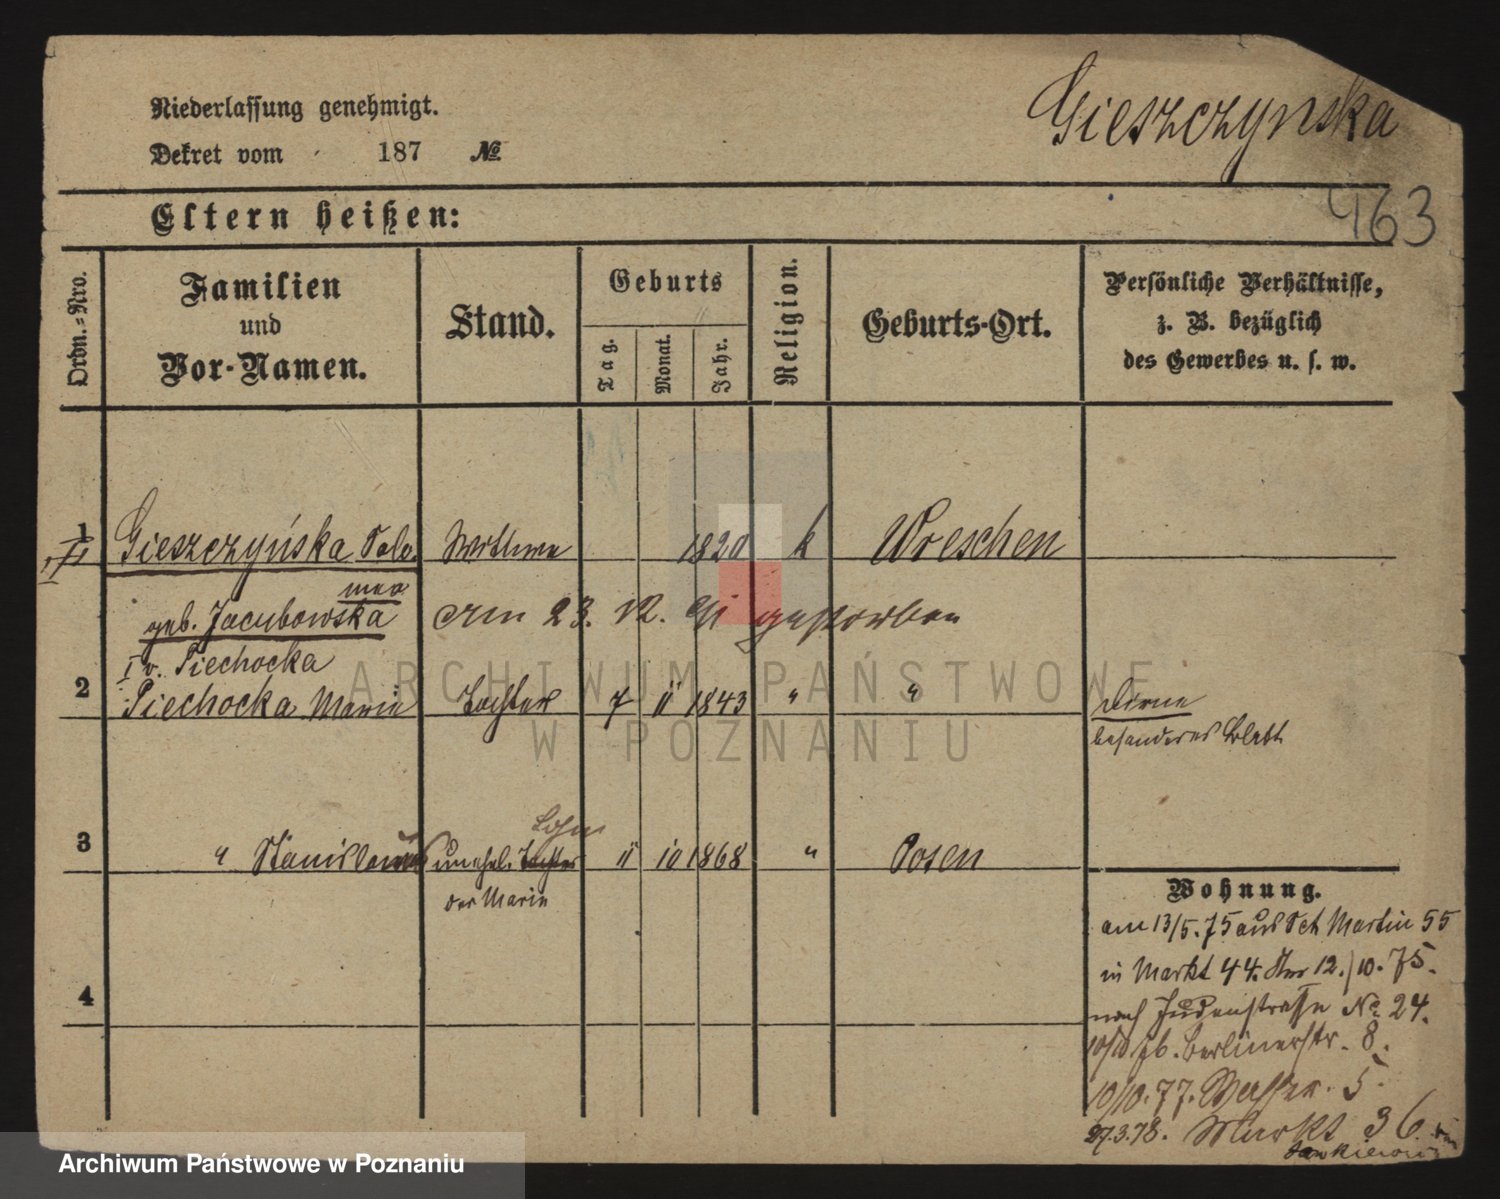 Niederlassung genehmigt.
Gieszczynska
Dekret vom 187 №
463
Eltern heißen:
Ordn.-Nro.
Familien
und
Vor-Namen.
Stand.
Geburts
Tag.
Monat.
Jahr.
Religion.
Geburts-Ort.
Persönliche Verhältnisse,
z. B. bezüglich
des Gewerbes u. s. w.
1 Gieszczyńska Salo Wittwe 1820 k Wreschen
mea
geb. Jacubowska am 23. 12. gestorben
I v. Piechocka
2 Piechocka Marie Tochter 7 11 1843 " " Dirne
besonderes Blatt
Sohn
3 " Stanislaus unehel. Tochter 11 10 1868 " Posen
der Marie
4
Wohnung.
am 13/5. 75 aus Sct Martin 55
in Markt 44. 12./10. 75.
nach Judenstrasse No 24.
10/10 76. Berlinerstr. 8.
10/10. 77. Wasserstr. 5.
27.3.78. Markt 36
ARCHIWUM PAŃSTWOWE
W POZNANIU
Archiwum Państwowe w Poznaniu